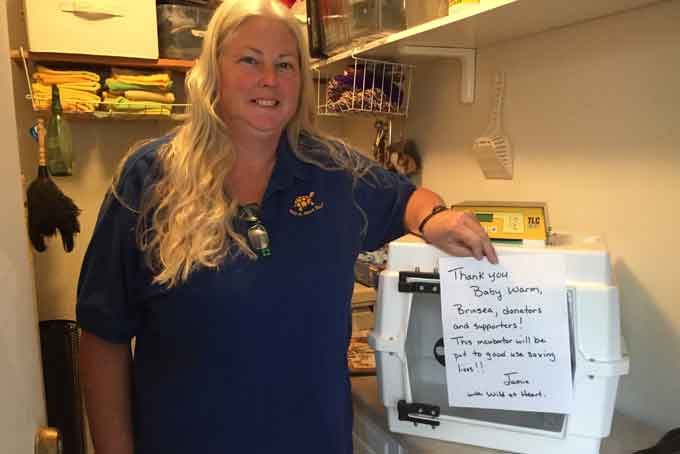 TLC
Thank you
Baby Warm,
Brinsea, donators
and supporters!
This incubator will be
put to good use saving
lives!!
Jamie
with Wild at Heart.